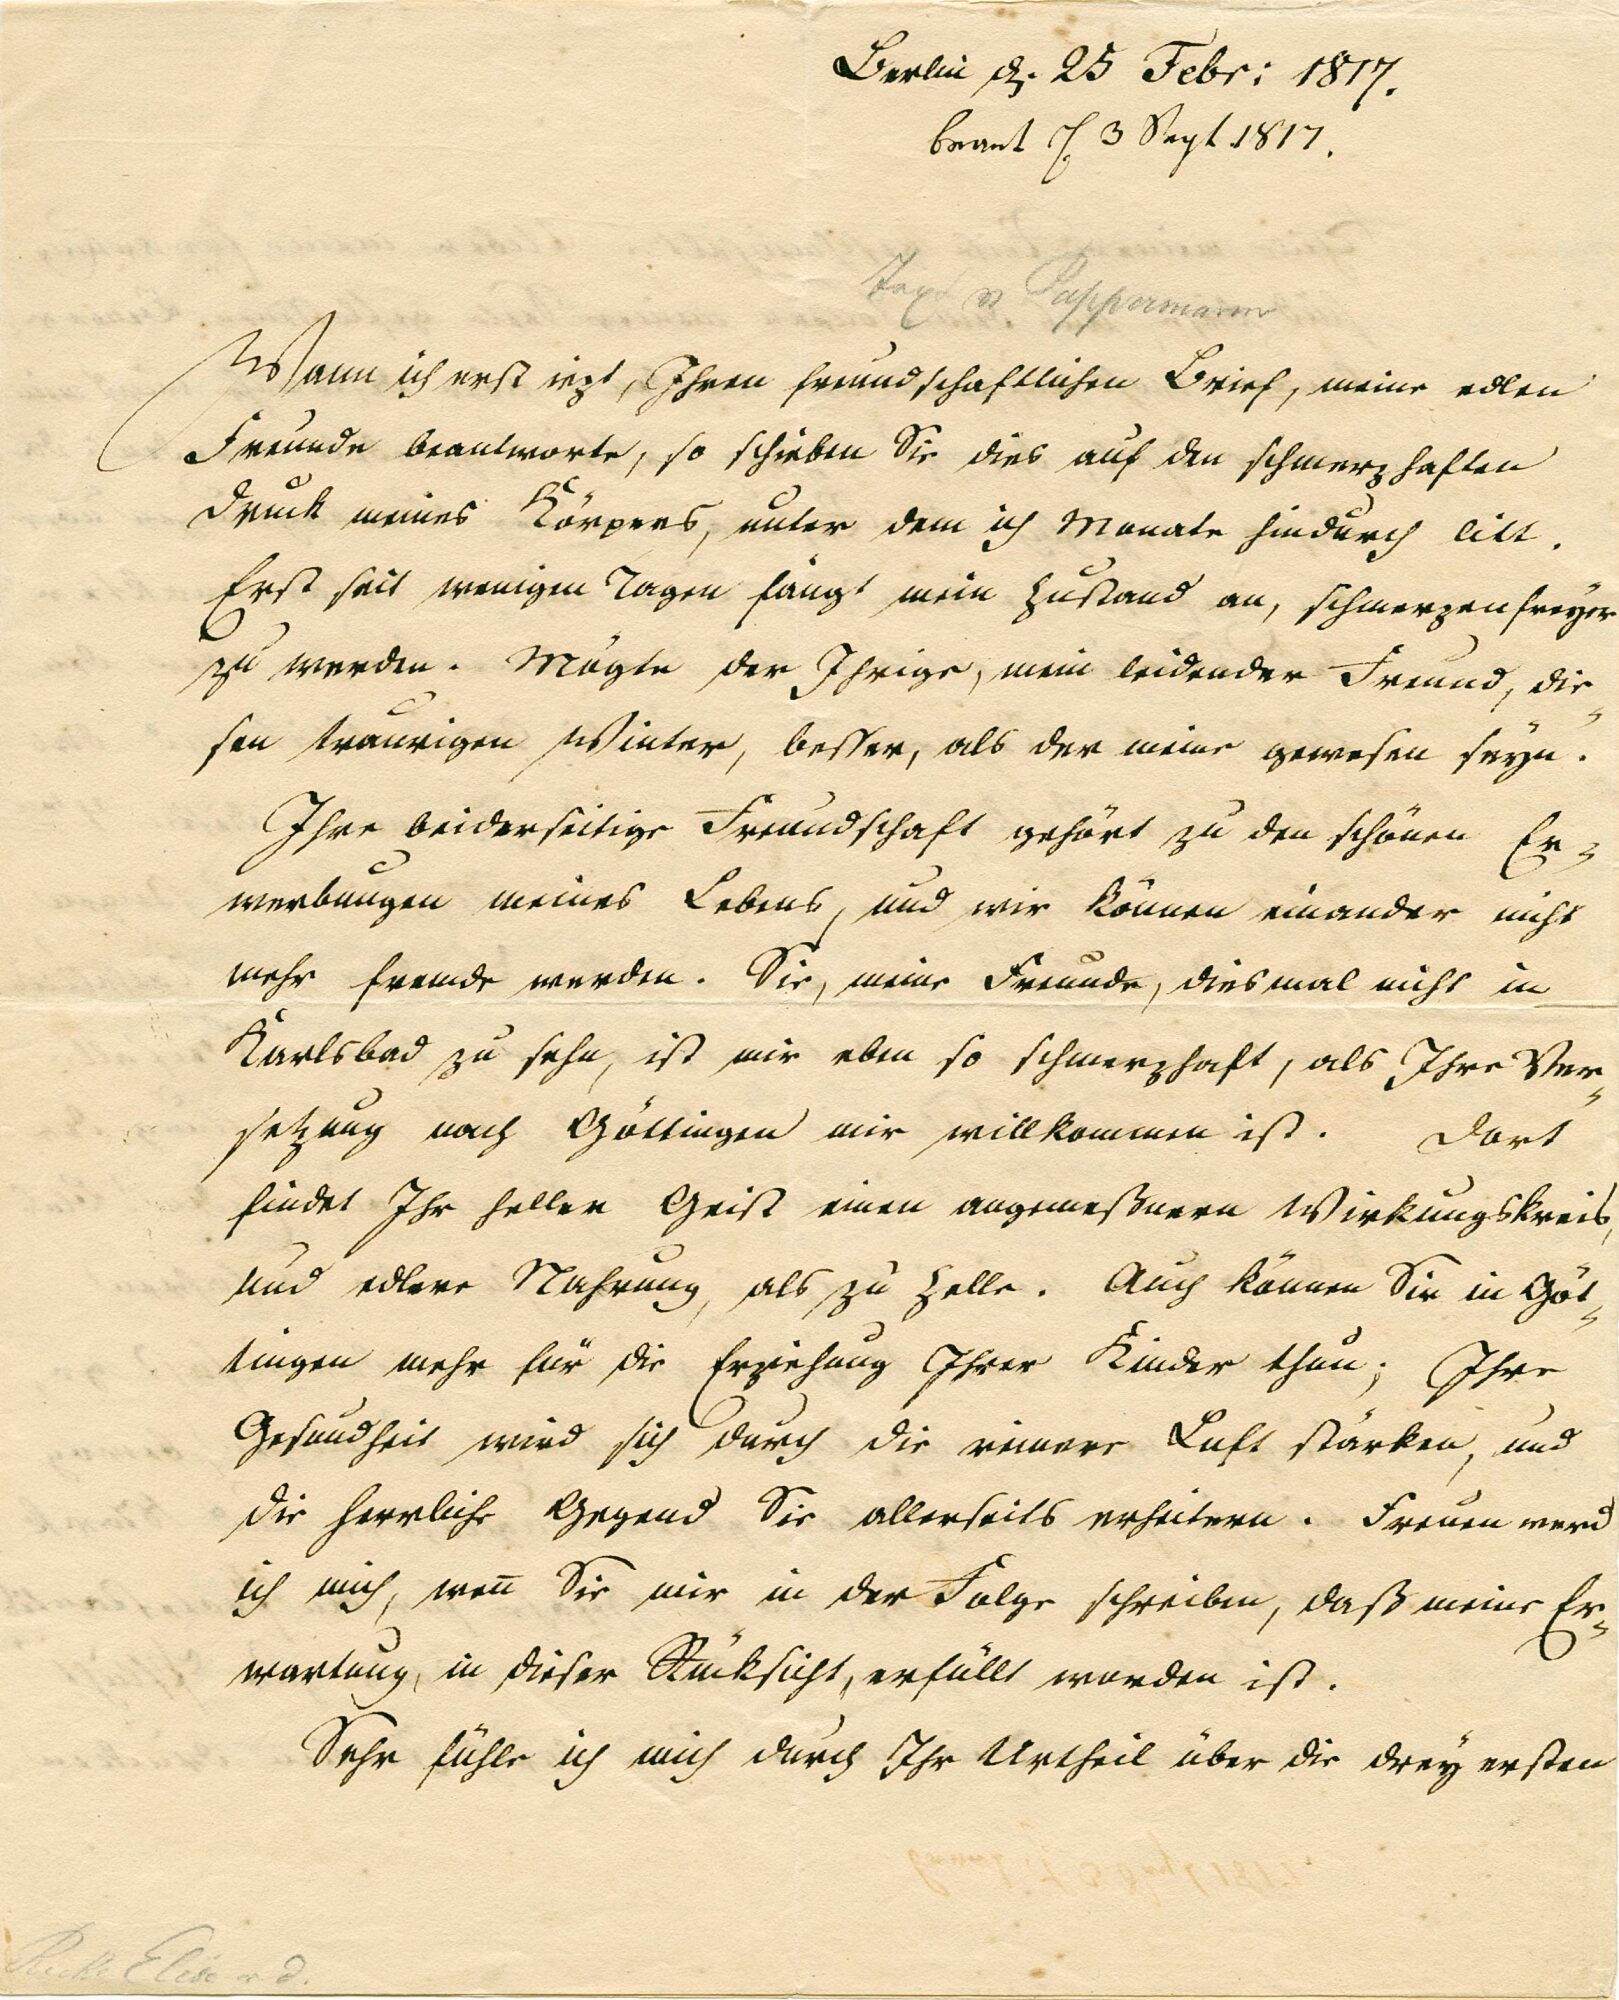 Berlin d. 25 Febr: 1817.
beant d 3 Sept 1817.
v Pappermann
Wann ich erst iezt, Ihren freundschaftlichen Brief, meine edlen
Freunde beantworte, so schieben Sie dies auf den schmerzhaften
Druck meines Körpers, unter dem ich Monate hindurch litt.
Erst seit wenigen Tagen fängt mein Zustand an, schmerzenfreyer
zu werden. Mögte der Ihrige, mein leidender Freund, die-
sen traurigen Winter, besser, als der meine gewesen seyn.
Ihre beiderseitige Freundschaft gehört zu den schönen Er-
werbungen meines Lebens, und wir können einander nicht
mehr fremde werden. Sie, meine Freunde, diesmal nicht in
Karlsbad zu sehn, ist mir eben so schmerzhaft, als Ihre Ver-
setzung nach Göttingen mir willkommen ist. Dort
findet Ihr heller Geist einen angemeßnern Wirkungskreis,
und edlere Nahrung, als zu Zelle. Auch können Sie in Göt-
tingen mehr für die Erziehung Ihrer Kinder thun; Ihre
Gesundheit wird sich durch die reinere Luft stärken, und
die herrliche Gegend Sie allerseits erheitern. Freuen werd
ich mich, weñ Sie mir in der Folge schreiben, daß meine Er-
wartung, in dieser Rücksicht, erfüllt worden ist.
Sehr fühle ich mich durch Ihr Urtheil über die drey ersten
Recke Elise v d.